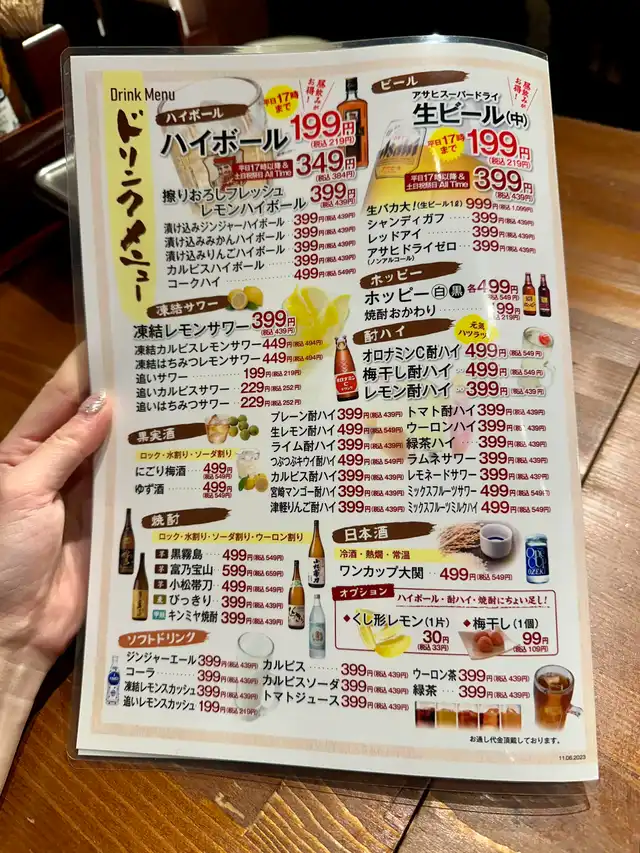 Drink Menu
ドリンクメニュー
ハイボール
平日17時まで
昼飲みがお得!
ハイボール 199円(税込 219円)
平日17時以降& 土日祝祭日 All Time 349円(税込 384円)
擦りおろしフレッシュレモンハイボール 399円(税込 439円)
漬け込みジンジャーハイボール 399円(税込 439円)
漬け込みみかんハイボール 399円(税込 439円)
漬け込みりんごハイボール 399円(税込 439円)
カルピスハイボール 399円(税込 439円)
コークハイ 499円(税込 549円)
ビール
昼飲みがお得!
アサヒスーパードライ
生ビール(中) 平日17時まで 199円(税込 219円)
平日17時以降& 土日祝祭日 All Time 399円(税込 439円)
生バカ大!(生ビール1ℓ) 999円(税込 1,099円)
シャンディガフ 399円(税込 439円)
レッドアイ 399円(税込 439円)
アサヒドライゼロ 399円(税込 439円)
(ノンアルコール)
ホッピー
ホッピー 白 黒 各499円(税込 549円)
焼酎おかわり 199円(税込 219円)
凍結サワー
凍結レモンサワー 399円(税込 439円)
凍結カルピスレモンサワー 449円(税込 494円)
凍結はちみつレモンサワー 449円(税込 494円)
追いサワー 199円(税込 219円)
追いカルピスサワー 229円(税込 252円)
追いはちみつサワー 229円(税込 252円)
酎ハイ
元気ハツラツ
オロナミンC酎ハイ 499円(税込 549円)
梅干し酎ハイ 499円(税込 549円)
レモン酎ハイ 399円(税込 439円)
プレーン酎ハイ 399円(税込 439円)
生レモン酎ハイ 499円(税込 549円)
ライム酎ハイ 399円(税込 439円)
つぶつぶキウイ酎ハイ 499円(税込 549円)
カルピス酎ハイ 399円(税込 439円)
宮崎マンゴー酎ハイ 399円(税込 439円)
津軽りんご酎ハイ 399円(税込 439円)
トマト酎ハイ 399円(税込 439円)
ウーロンハイ 399円(税込 439円)
緑茶ハイ 399円(税込 439円)
ラムネサワー 399円(税込 439円)
レモネードサワー 399円(税込 439円)
ミックスフルーツサワー 499円(税込 549円)
ミックスフルーツミルクハイ 499円(税込 549円)
果実酒
ロック・水割り・ソーダ割り
にごり梅酒 499円(税込 549円)
ゆず酒 499円(税込 549円)
焼酎
ロック・水割り・ソーダ割り・ウーロン割り
芋 黒霧島 499円(税込 549円)
芋 富乃宝山 599円(税込 659円)
芋 小松帯刀 499円(税込 549円)
麦 びっきり 399円(税込 439円)
甲類 キンミヤ焼酎 399円(税込 439円)
日本酒
冷酒・熱燗・常温
ワンカップ大関 499円(税込 549円)
オプション
ハイボール・酎ハイ・焼酎にちょい足し!
◆くし形レモン(1片) 30円(税込 33円)
◆梅干し(1個) 99円(税込 109円)
ソフトドリンク
ジンジャーエール 399円(税込 439円)
コーラ 399円(税込 439円)
凍結レモンスカッシュ 399円(税込 439円)
追いレモンスカッシュ 199円(税込 219円)
カルピス 399円(税込 439円)
カルピスソーダ 399円(税込 439円)
トマトジュース 399円(税込 439円)
ウーロン茶 399円(税込 439円)
緑茶 399円(税込 439円)
お通し代金頂戴しております。
11.06.2023